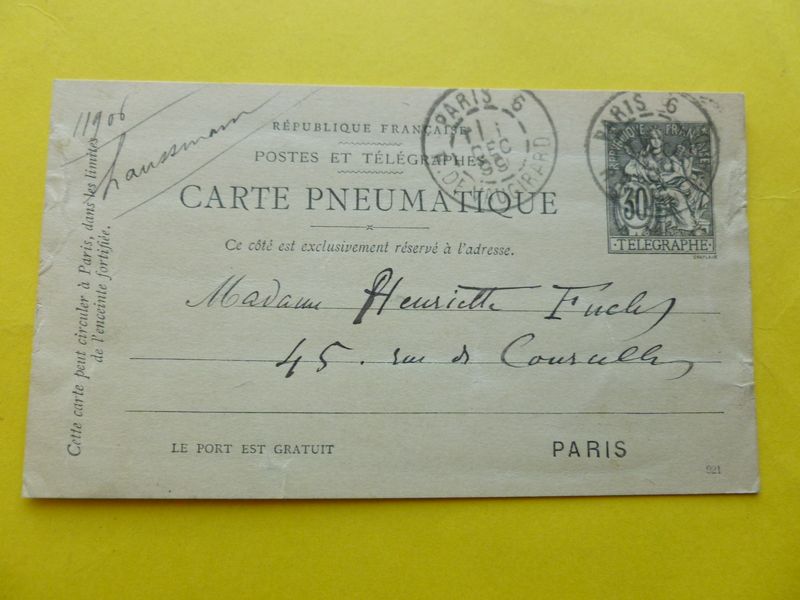 11906
Cette carte peut circuler à Paris, dans les limites
de l'enceinte fortifiée.
PARIS 6
PARIS 6
RÉPUBLIQUE FRANÇAISE
RÉPUBLIQUE FRANÇAISE
POSTES ET TÉLÉGRAPHES
CARTE PNEUMATIQUE
30
TÉLÉGRAPHE
CHAPLAIN
Ce côté est exclusivement réservé à l'adresse.
Madame Henriette Fuchs
45. rue de Courcelles
LE PORT EST GRATUIT
PARIS
921